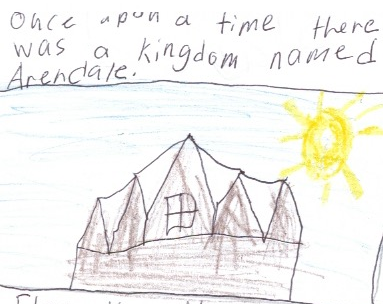 Once upon a time there
was a kingdom named
Arendale.